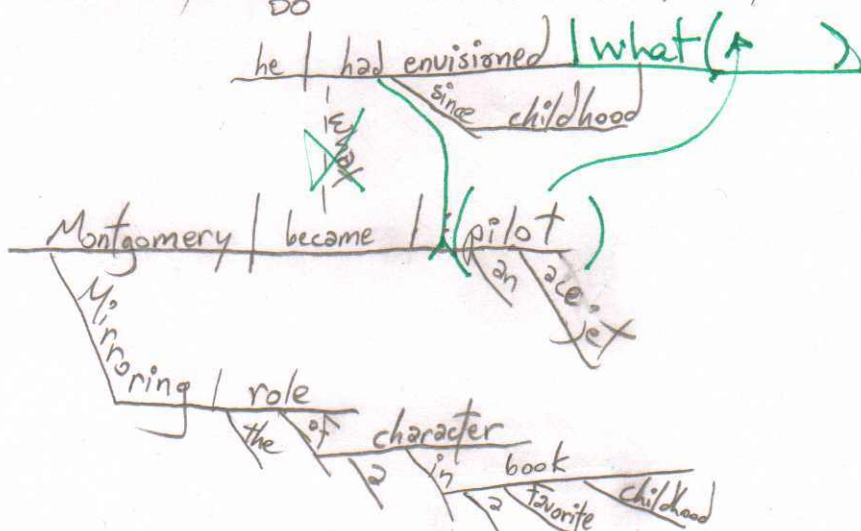 DO
he had envisioned what( )
since childhood
Montgomery became (pilot)
an ace jet
Mirroring role
the of character
a in book
a favorite childhood